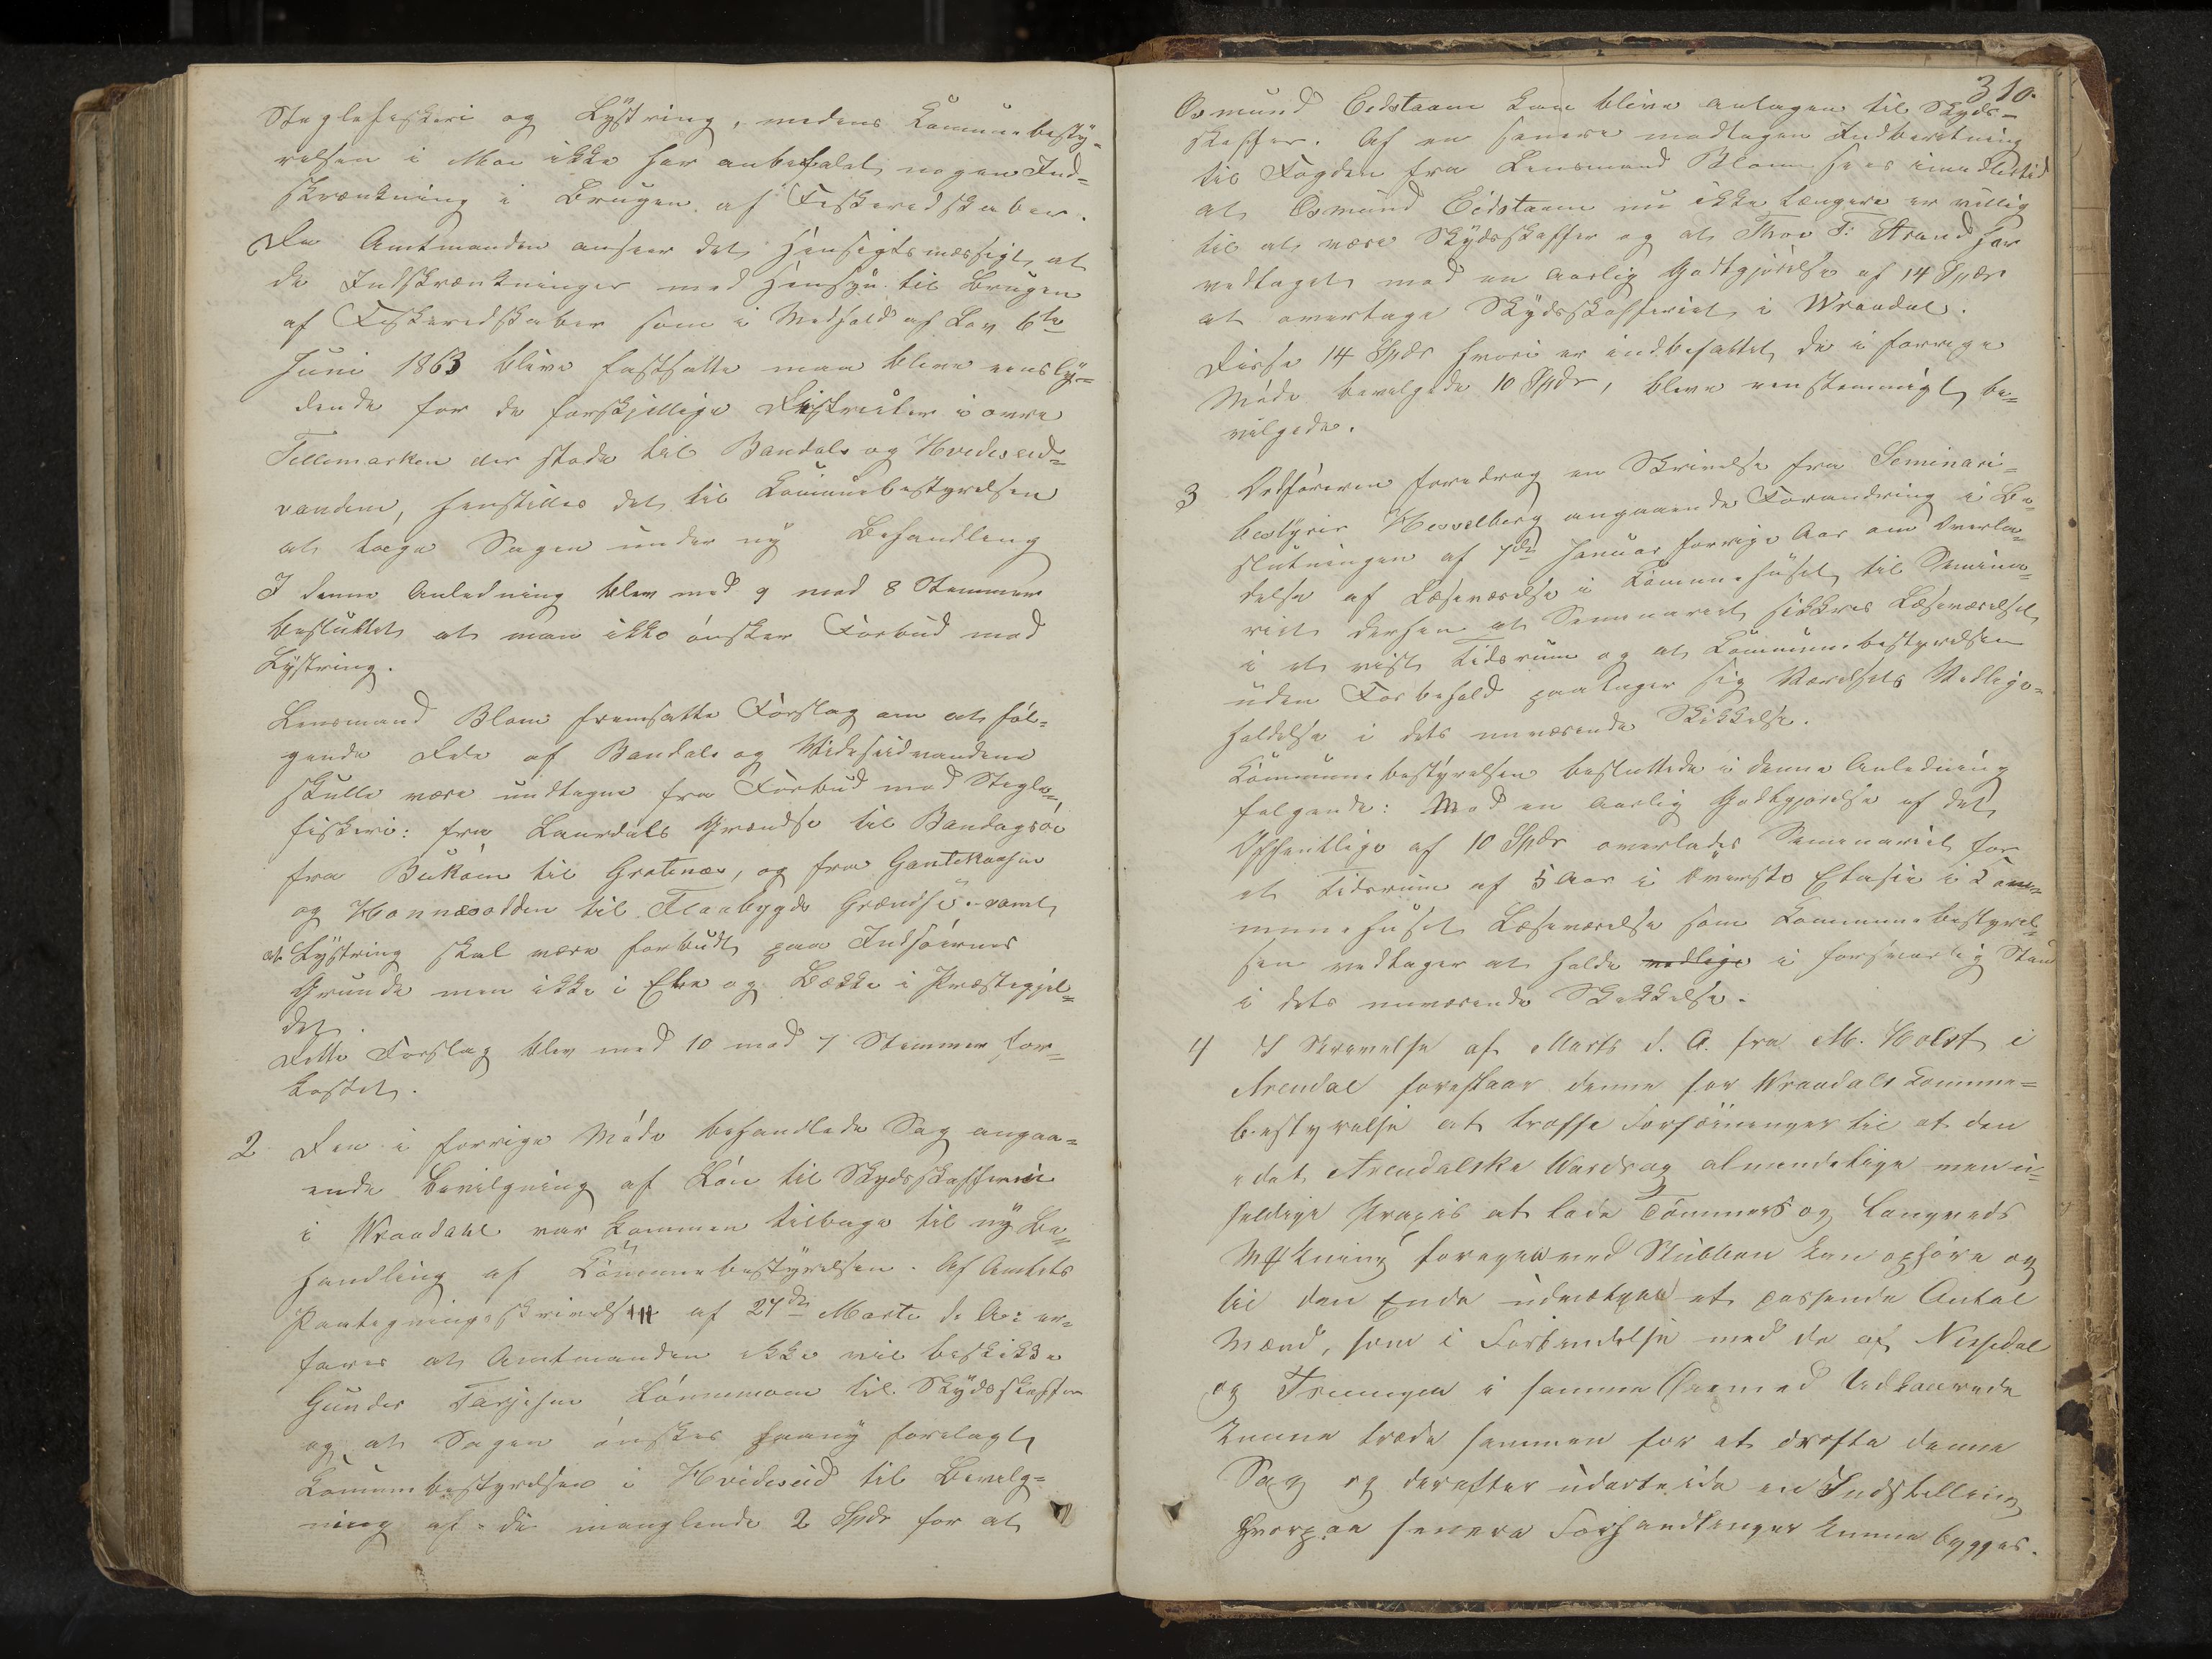 Steglefiskeri og Lystring, medens Kommunebesty-
relsen i Moe ikke har anbefalet nogen Ind-
skrænkning i Brugen af Fiskeredskaber.
Da Amtmanden anseer det hensigtsmæssigt at
de Indskrænkninger med Hensyn til Brugen
af Fiskeredskaber som i Medhold af Lov 6te
Juni 1863 blive fastsatte maa blive eensly-
dende for de forskjellige Districter i øvre
Tellemarken der støde til Bandaks og Hvideseid-
vandene, henstilles det til Kommunebestyrelsen
at tage Sagen under ny Behandling
I denne Anledning blev med 9 mod 8 Stemmer
besluttet at man ikke ønsker Forbud mod
Lystring.
Lensmand Blom fremsatte Forslag om at føl-
gende Dele af Bandaks og Videseidvandene
skulle være undtagne fra Forbud mod Stegle-
fiskeri: fra Laurdals Grændse til Bandagsøe
fra Bukøm til Grotnæs, og fra
og Honnæsodden til Flaabygds Grændse. samt
at Lystring skal være forbudt paa Indsøernes
Grunde men ikke i Elve og Bække i Præstegjel-
det.
Dette Forslag blev med 10 mod 7 Stemmer for-
kastet.
2 Den i forrige Møde behandlede Sag angaa-
ende Bevilgning af Løn til Skydsskafferie
i Vraadahl var kommen tilbage til ny Be-
handling af Kommunebestyrelsen. Af Amtets
Paategningsskrivelse af 27de Marts d. A. er-
fares at Amtmanden ikke vil beskikke
Gunder Tarjesen Lønnemoen til Skydsskaffer
og at Sagen ønskes paany forelagt
Kommunebestyrelsen i Hvideseid til Bevilg-
ning af de manglende 2 Spdr for at
310.
Osmund Eidstaam kan blive antagen til Skyds-
skaffer. Af en senere modtagen Indberetning
til Fogden fra Lensmand Blom sees imidlertid
at Osmund Eidstaam nu ikke længere er villig
til at være Skydsskaffer og at Thov T. Strand har
vedtaget mod en aarlig Godtgjørelse af 14 Spdr
at overtage Skydsskafferiet i Vraadal.
Disse 14 Spdr hvori er indbefattet de i forrige
Møde bevilgede 10 Spdr, bleve eenstemmigt be-
vilgede.
3 Ordføreren foredrog en Skrivelse fra Seminari-
bestyrer Hesselberg angaaende Forandring i Be-
slutningen af 7de Januar forrige Aar om Overla-
delse af Læseværelse i Kommunehuset til Semina-
riet derhen at Seminariet sikkres Læseværelset
i et vist Tidsrum og at Kommunebestyrelsen
uden Forbehold paatager sig Værelsets Vedlige-
holdelse i dets nuværende Skikkelse.
Kommunebestyrelsen besluttede i denne Anledning
følgende: Mod en aarlig Godtgjørelse af det
Offentlige af 10 Spdr overlades Seminariet for
et Tidsrum af 5 Aar i øverste Etasie i Kom-
munehuset Læseværelse som Kommunebestyrel-
sen vedtager at holde vedlige i forsvarlig Stand
i dets nuværende Skikkelse.
4 I Skrivelse af Marts d. A. fra M. Holst i
Arendal foreslaar denne for Vraadals Kommune-
bestyrelse at træffe Forføininger til at den
i det Arendalske Vasdrag almindelige men u-
heldige Praxis at lade Tømmer og Langveds
Mærkning foregaa ved Stubben kan ophøre og
til den Ende udvælges et passende Antal
Mænd, som i Forbindelse med de af Nissedal
og Treungen i samme Øiemed Udkaarede
kunne træde sammen for at drøfte denne
Sag og derefter udarbeide en Indstilling
hvorpaa senere Forhandlinger kunne bygges.